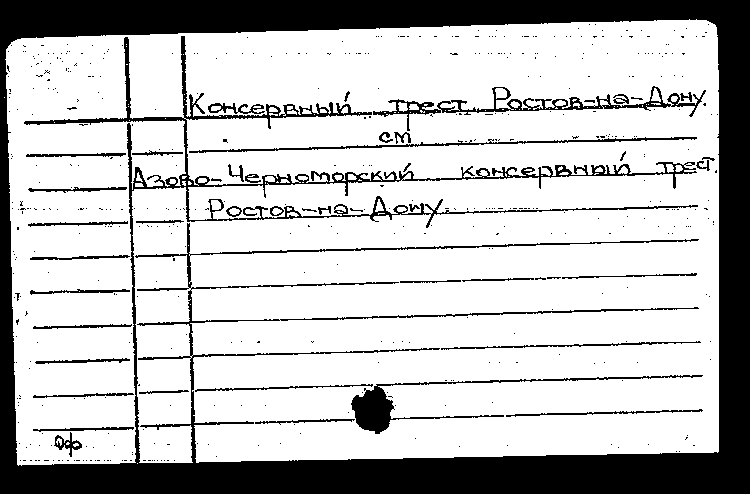 Консервный трест Ростов-на-Дону.
см
Азово-Черноморский консервный трест.
Ростов-на-Дону.